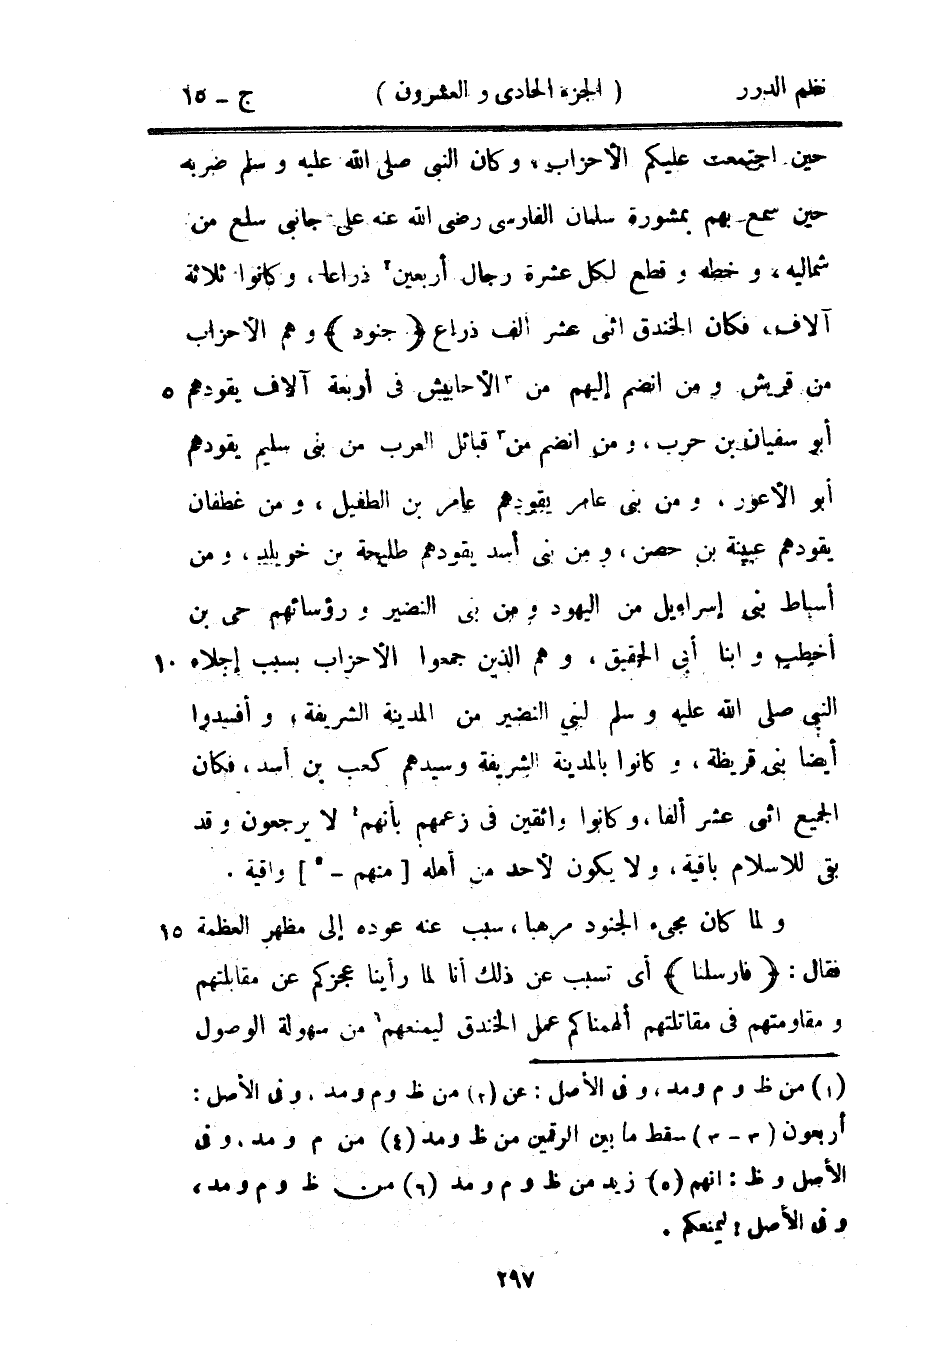 نظم الدرر ( الجزء الحادى و العشرون ) ج – ١٥
حين اجتمعت عليكم الأحزاب، و كان النبى صلى الله عليه و سلم ضربه
حين سمع بهم بمشورة سلمان الفارسى رضى الله عنه على١ جانبى سلع من
شماليه، و خطه و قطع لكل عشرة رجال أربعين٢ ذراعا، و كانوا ثلاثة
آلاف، فكان الخندق اثنى عشر ألف ذراع ﴿ جنود ﴾ و هم الأحزاب
من قريش و من انضم إليهم من ٣ الأحابيش فى أربعة آلاف يقودهم ٥
أبو سفيان بن حرب، و من انضم من٣ قبائل العرب من بنى سليم يقودهم
أبو الأعور، و من بنى عامر يقودهم عامر بن الطفيل، و من غطفان
يقودهم عيينة بن حصن، و من بنى أسد يقودهم طليحة بن خويلد، و من
أسباط بنى إسراءيل من اليهود و من بنى النضير و رؤسائهم حى بن
أخطب و ابنا أبى الحقيق، و هم الذين جمعوا الأحزاب بسبب إجلاء ١٠
النبى صلى الله عليه و سلم لبنى النضير من المدينة الشريفة، و أفسدوا
أيضا بنى قريظة، و كانوا بالمدينة الشريفة و سيدهم كعب بن أسد، فكان
الجميع اثنى عشر ألفا، و كانوا واثقين فى زعمهم بأنهم٤ لا يرجعون و قد
بقى للاسلام باقية، و لا يكون لأحد من أهله [ منهم – ٥ ] واقية .
و لما كان مجىء الجنود مرهبا، سبب عنه عوده إلى مظهر العظمة ١٥
فقال : ﴿ فارسلنا ﴾ أى تسبب عن ذلك أنا لما رأينا عجزكم عن مقابلتهم
و مقاومتهم فى مقاتلتهم ألهمناكم عمل الخندق ليمنعهم٦ من سهولة الوصول
(١) من ظ و م و مد، و فى الأصل : عن (٢) من ظ و م و مد، و فى الأصل :
أربعون (٣ – ٣) سقط ما بين الرقمين من ظ و مد (٤) من م و مد، و فى
الأصل و ظ : انهم (٥) زيد من ظ و م و مد (٦) من ظ و م و مد،
و فى الأصل : ليمنعكم .
٢٩٧